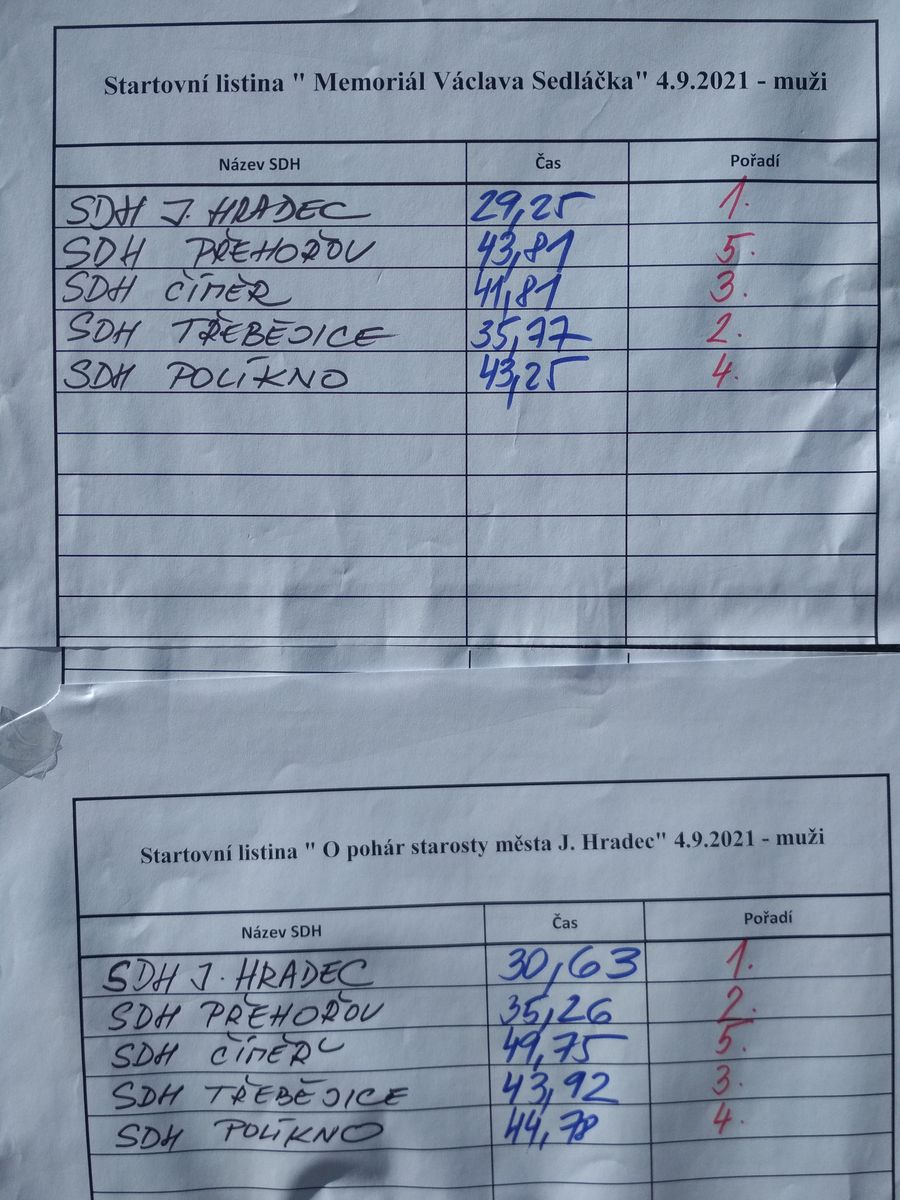 Startovní listina " Memoriál Václava Sedláčka" 4.9.2021 - muži
Název SDH Čas Pořadí
SDH J. HRADEC 29,25 1.
SDH PŘEHOŘOV 43,81 5.
SDH ČÍMĚŘ 41,81 3.
SDH TŘEBĚJICE 35,77 2.
SDH POLÍKNO 43,25 4.
Startovní listina " O pohár starosty města J. Hradec" 4.9.2021 - muži
Název SDH Čas Pořadí
SDH J. HRADEC 30,63 1.
SDH PŘEHOŘOV 35,26 2.
SDH ČÍMĚŘ 49,75 5.
SDH TŘEBĚJICE 43,92 3.
SDH POLÍKNO 44,78 4.